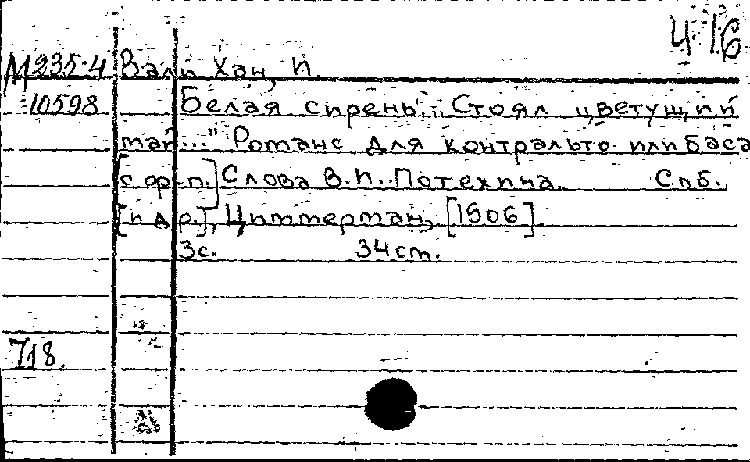 Ч-16
М235-4 Вали Хан, И.
10598 Белая сирень. „Стоял цветущий
май..." Романс для контральто или баса
[с ф-п.] Слова В.И. Потехина. Спб.
[и др.], Циммерман, [1906]
3с. 34см.
718.